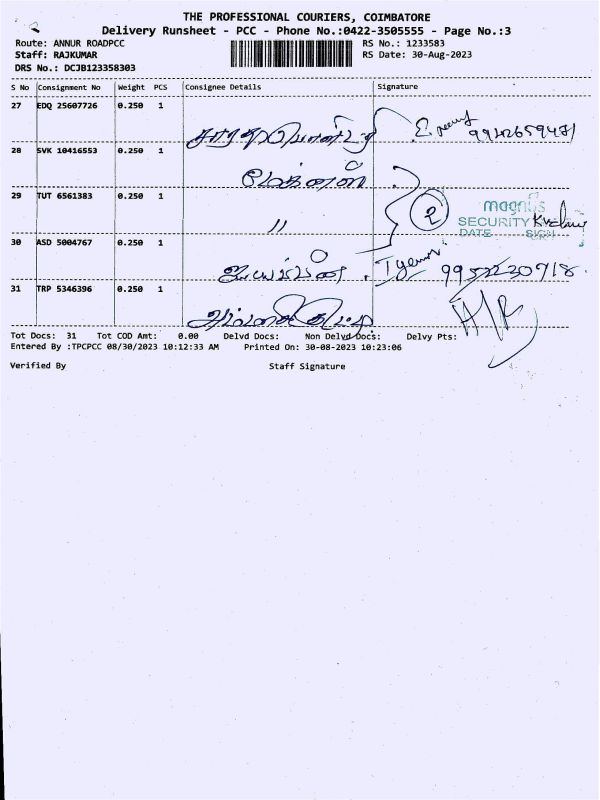 THE PROFESSIONAL COURIERS, COIMBATORE
Delivery Runsheet - PCC - Phone No.:0422-3505555 - Page No.:3
Route: ANNUR ROADPCC
Staff: RAJKUMAR
DRS No.: DCJB123358303
RS No.: 1233583
RS Date: 30-Aug-2023
S No Consignment No Weight PCS Consignee Details Signature
27 EDQ 25607726 0.250 1
28 SVK 10416553 0.250 1
29 TUT 6561383 0.250 1 〃
2
magnus
SECURITY
DATE SIGN
30 ASD 5004767 0.250 1
9952230718
31 TRP 5346396 0.250 1
Tot Docs: 31 Tot COD Amt: 0.00 Delvd Docs: Non Delvd Docs: Delvy Pts:
Entered By :TPCPCC 08/30/2023 10:12:33 AM Printed On: 30-08-2023 10:23:06
Verified By Staff Signature